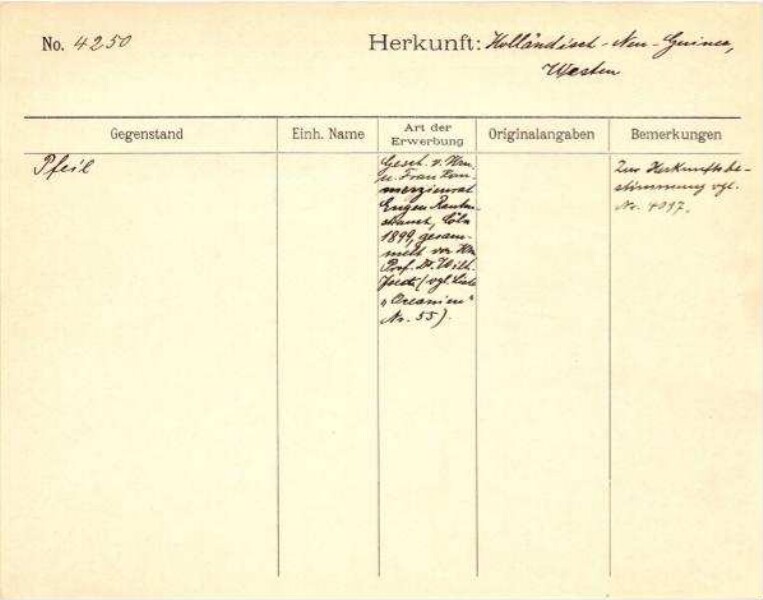 No. 4250
Herkunft: Holländisch-Neu-Guinea,
Westen
Gegenstand
Einh. Name
Art der
Erwerbung
Originalangaben
Bemerkungen
Pfeil
Gesch. v. Hrn.
u. Frau Kom-
merzienrat
Eugen Rauten-
strauch, Cöln
1899, gesam-
melt von Hrn
Prof. Dr. Wilh.
Joest (vgl. Liste
„Oceanien"
Nr. 55).
Zur Herkunftsbe-
stimmung vgl.
Nr. 4097.